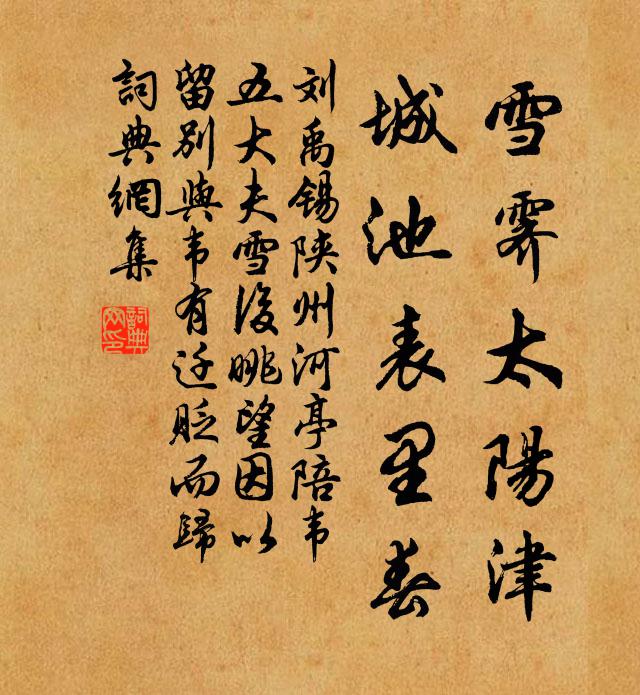 雪霽太陽津
城池表里春
刘禹锡陕州河亭陪韦
五大夫雪後眺望因以
留别與韦有迁贬而歸
詞典網集
詞典
网印